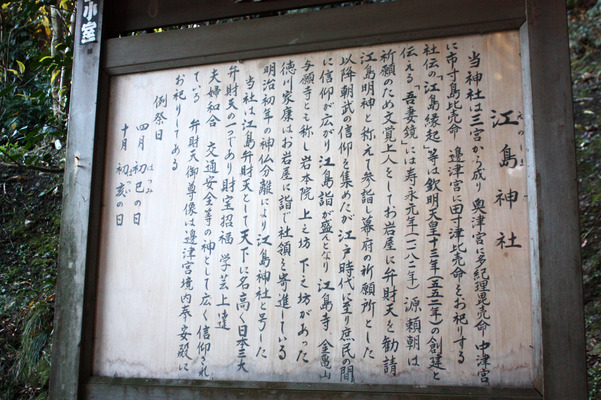 江島神社
えのしま
当神社は三宮から成り 奥津宮に多紀理毘売命 中津宮
に市寸島比売命 邊津宮に田寸津比売命をお祀りする
社伝の「江島縁起」等は欽明天皇十三年(五五二年)の創建と
伝える「吾妻鏡」には寿永元年(一一八二年) 源頼朝は
祈願のため文覚上人をしてお岩屋に弁財天を勧請
江島明神と称えて参詣し幕府の祈願所とした
以降朝武の信仰を集めたが江戸時代に至り庶民の間
に信仰が広がり 江島詣が盛んとなり 江島寺 金亀山
与願寺とも称し岩本院 上之坊 下之坊があった
徳川家康はお岩屋に詣じ社領を寄進している
明治初年の神仏分離により江島神社と号した
当社は江島弁財天として天下に名高く日本三大
弁財天の一つであり財宝招福 学芸上達
夫婦和合 交通安全等の神として広く信仰され
ている 弁財天御尊像は邊津宮境内奉安殿に
お祀りしてある
例祭日
四月 初巳の日
はつみ
十月 初亥の日
小室